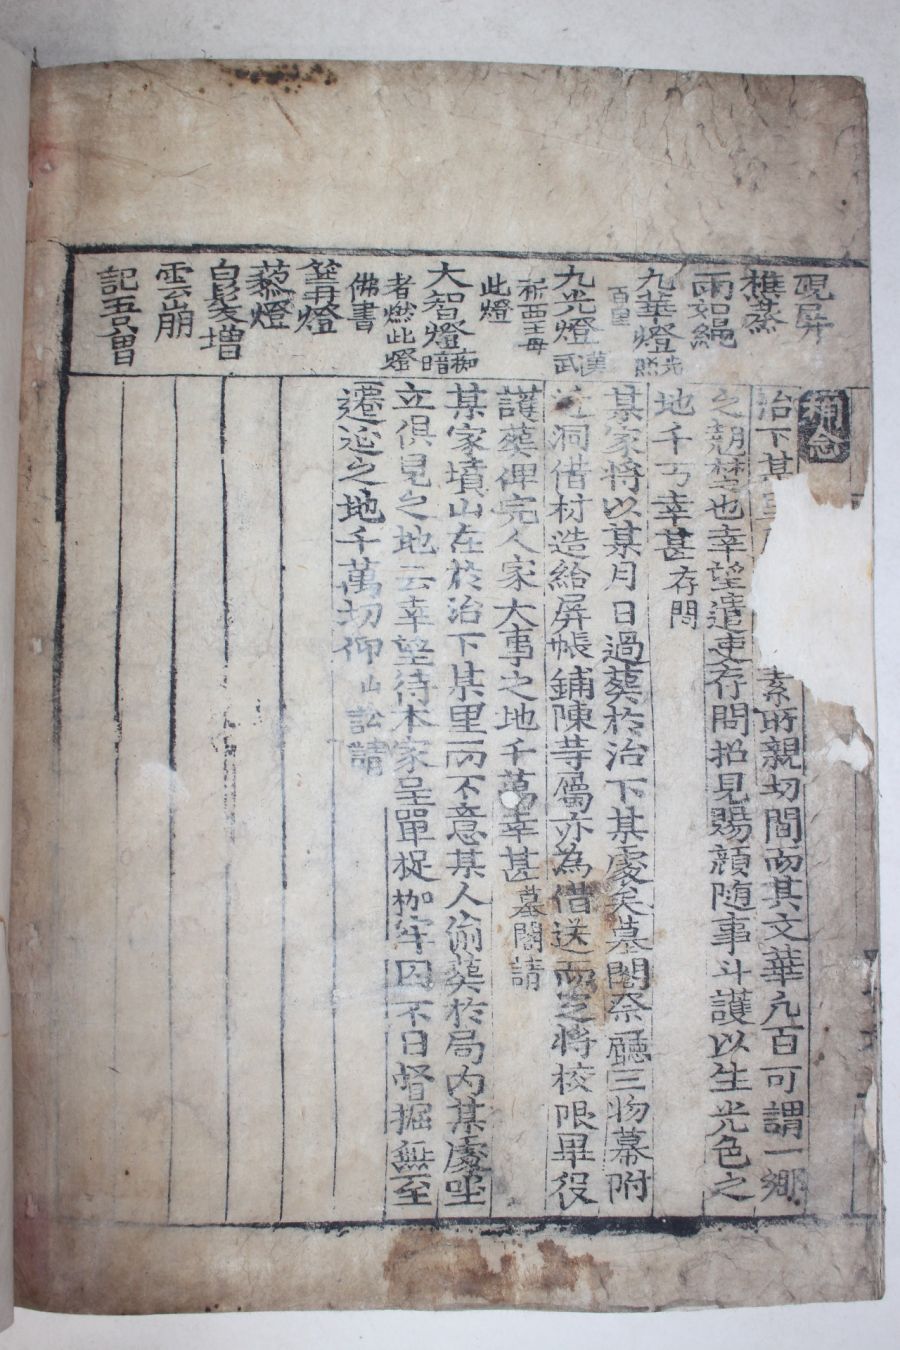 硯屛
樵蘇
雨如繩
九華燈 照先
百里
九光燈 漢武
祈西王母
此燈
大智燈 痴暗
者燃此燈
佛書
篝燈
藜燈
白髮增
雲崩
記吾曾
治下某
素所親切間而其文華凡百可謂一鄕
之翹楚也幸望遣吏存問招見賜顔隨事斗護以生光色之
地千万幸甚 存問
某家將以某月日過葬於治下某處矣墓閣奈廳三物幕附
近洞借材造給屛帳鋪陳等屬亦為借送而定將校限畢役
護葬俾完人家大事之地千萬幸甚 墓閣請
某家墳山在於治下某里而不意某人偷葬於局內某處坐
立俱見之地云幸望待本家呈單捉枷牢囚不日督掘無至
遷延之地千萬切仰 山訟請